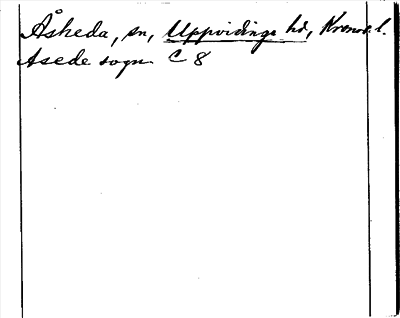 Åsheda, sn, Uppvidinge hd, Kronob. l.
Asede sogn C 8